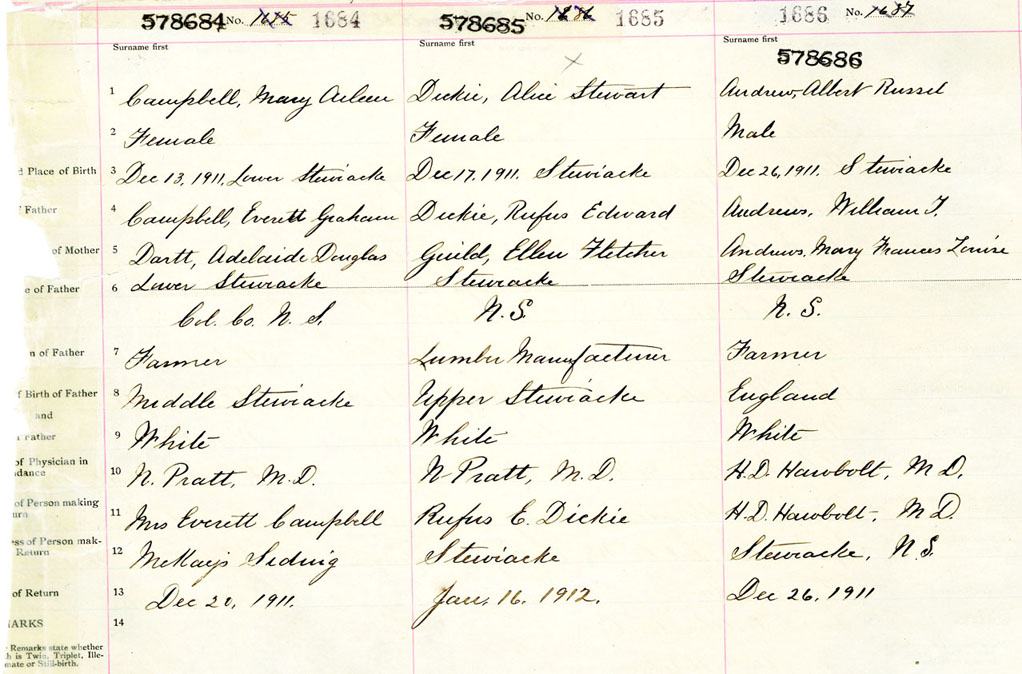 578684 No. 1684
578685 No. 1685
1686 No. 1687
578686
Surname first
Surname first
Surname first
1 Campbell, Mary Aileen
Dickie, Alice Stewart
Andrew, Albert Russel
2 Female
Female
Male
Place of Birth
3 Dec 13, 1911, Lower Stewiacke
Dec 17, 1911. Stewiacke
Dec 26, 1911. Stewiacke
Father
4 Campbell, Everett Graham
Dickie, Rufus Edward
Andrews, William T.
of Mother
5 Dartt, Adelaide Douglas
Guild, Ellen Fletcher
Andrews, Mary Frances Louise
e of Father
6 Lower Stewiacke
Stewiacke
Stewiacke
Col. Co. N. S.
N. S.
N. S.
n of Father
7 Farmer
Lumber Manufacturer
Farmer
f Birth of Father
8 Middle Stewiacke
Upper Stewiacke
England
and
Father
9 White
White
White
of Physician in
dance
10 N. Pratt, M.D.
N Pratt, M.D.
H.D. Hawbolt, M D.
of Person making
urn
11 Mrs Everett Campbell
Rufus E. Dickie
H.D. Hawbolt, M D.
ess of Person mak-
Return
12 McKays Siding
Stewiacke
Stewiacke, N.S.
of Return
13 Dec 20, 1911.
Jan. 16. 1912.
Dec 26, 1911
MARKS
14
Remarks state whether
h is Twin, Triplet, Ille-
mate or Still-birth.